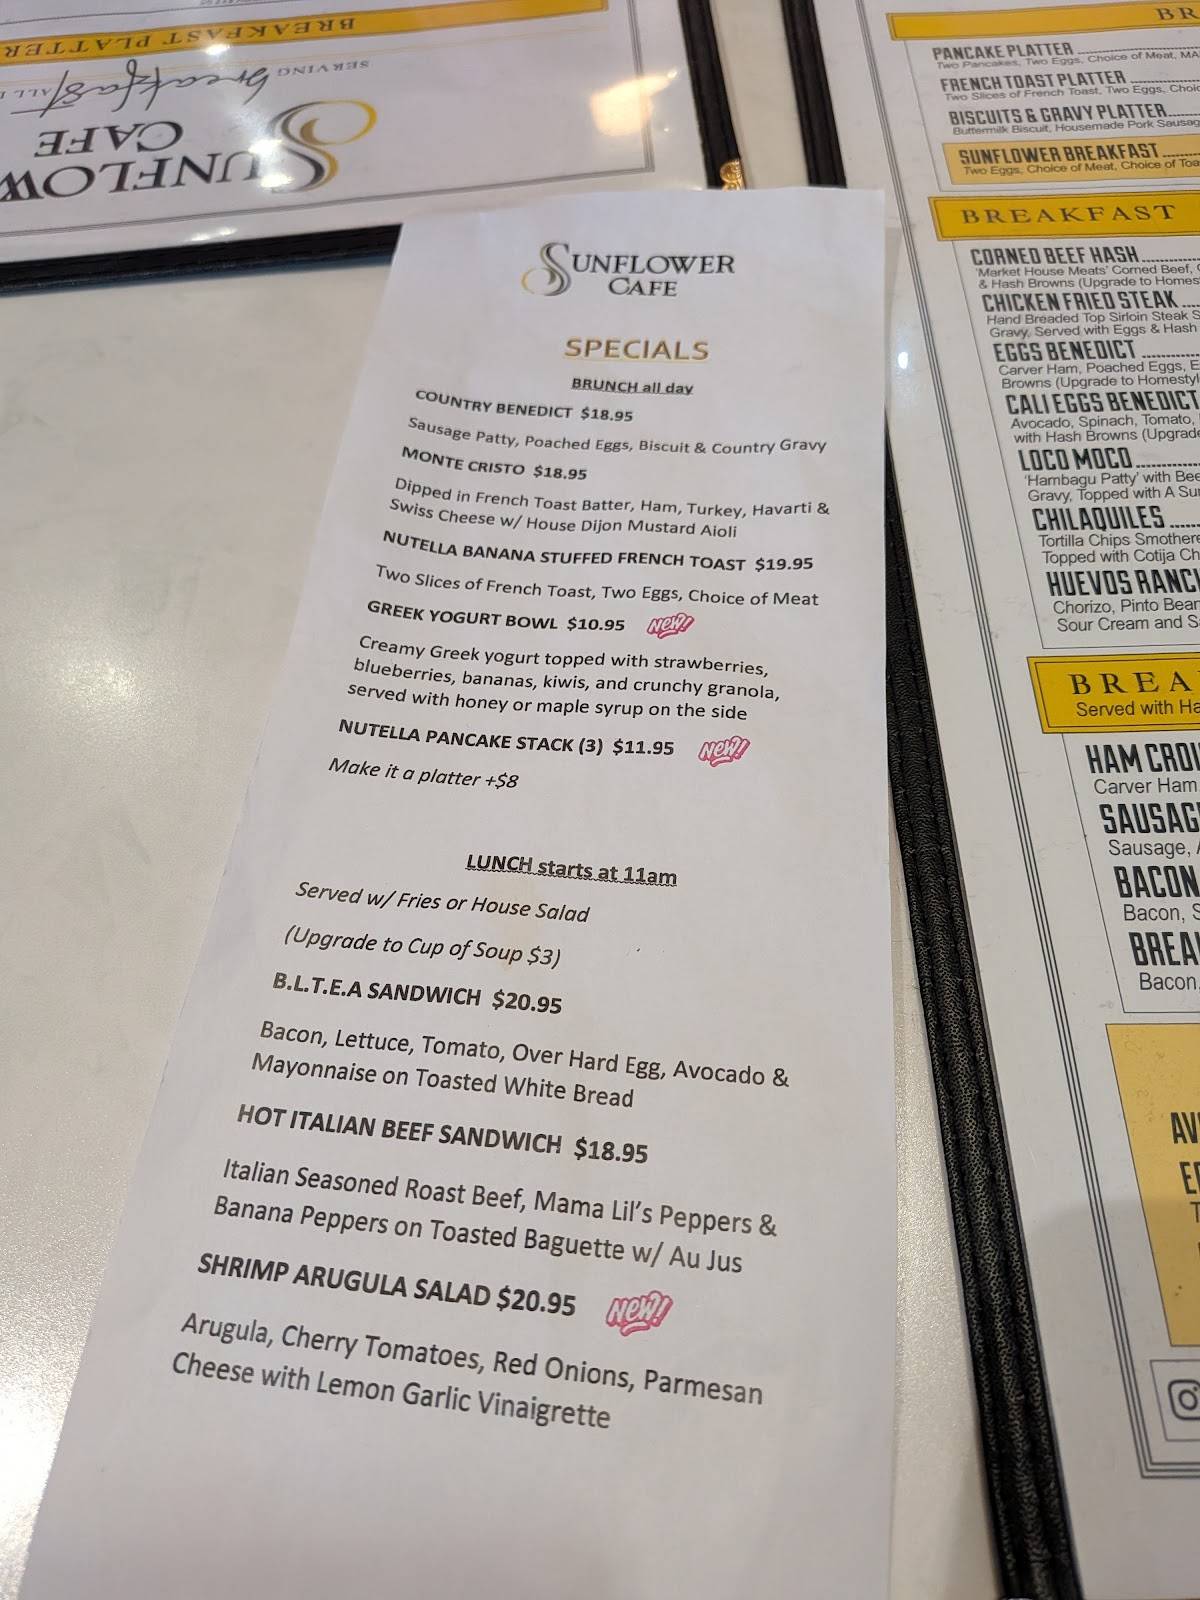 BREAKFAST PLATTER
SERVING breakfast ALL
SUNFLOW
CAFE
SUNFLOWER
CAFE
SPECIALS
BRUNCH all day
COUNTRY BENEDICT $18.95
Sausage Patty, Poached Eggs, Biscuit & Country Gravy
MONTE CRISTO $18.95
Dipped in French Toast Batter, Ham, Turkey, Havarti &
Swiss Cheese w/ House Dijon Mustard Aioli
NUTELLA BANANA STUFFED FRENCH TOAST $19.95
Two Slices of French Toast, Two Eggs, Choice of Meat
GREEK YOGURT BOWL $10.95 NEW!
Creamy Greek yogurt topped with strawberries,
blueberries, bananas, kiwis, and crunchy granola,
served with honey or maple syrup on the side
NUTELLA PANCAKE STACK (3) $11.95 NEW!
Make it a platter +$8
LUNCH starts at 11am
Served w/ Fries or House Salad
(Upgrade to Cup of Soup $3)
B.L.T.E.A SANDWICH $20.95
Bacon, Lettuce, Tomato, Over Hard Egg, Avocado &
Mayonnaise on Toasted White Bread
HOT ITALIAN BEEF SANDWICH $18.95
Italian Seasoned Roast Beef, Mama Lil's Peppers &
Banana Peppers on Toasted Baguette w/ Au Jus
SHRIMP ARUGULA SALAD $20.95 NEW!
Arugula, Cherry Tomatoes, Red Onions, Parmesan
Cheese with Lemon Garlic Vinaigrette
BR
PANCAKE PLATTER
Two Pancakes, Two Eggs, Choice of Meat, MA
FRENCH TOAST PLATTER
Two Slices of French Toast, Two Eggs, Choic
BISCUITS & GRAVY PLATTER
Buttermilk Biscuit, Housemade Pork Sausag
SUNFLOWER BREAKFAST
Two Eggs, Choice of Meat, Choice of Toa
BREAKFAST
CORNED BEEF HASH
'Market House Meats' Corned Beef,
& Hash Browns (Upgrade to Homes
CHICKEN FRIED STEAK
Hand Breaded Top Sirloin Steak S
Gravy, Served with Eggs & Hash
EGGS BENEDICT
Carver Ham, Poached Eggs, E
Browns (Upgrade to Homestyl
CALI EGGS BENEDICT
Avocado, Spinach, Tomato,
with Hash Browns (Upgrade
LOCO MOCO
'Hambagu Patty' with Bee
Gravy, Topped with A Su
CHILAQUILES
Tortilla Chips Smothere
Topped with Cotija Ch
HUEVOS RANC
Chorizo, Pinto Bean
Sour Cream and S
BREA
Served with Ha
HAM CROI
Carver Ham
SAUSAG
Sausage, A
BACON
Bacon, S
BREA
Bacon,
AV